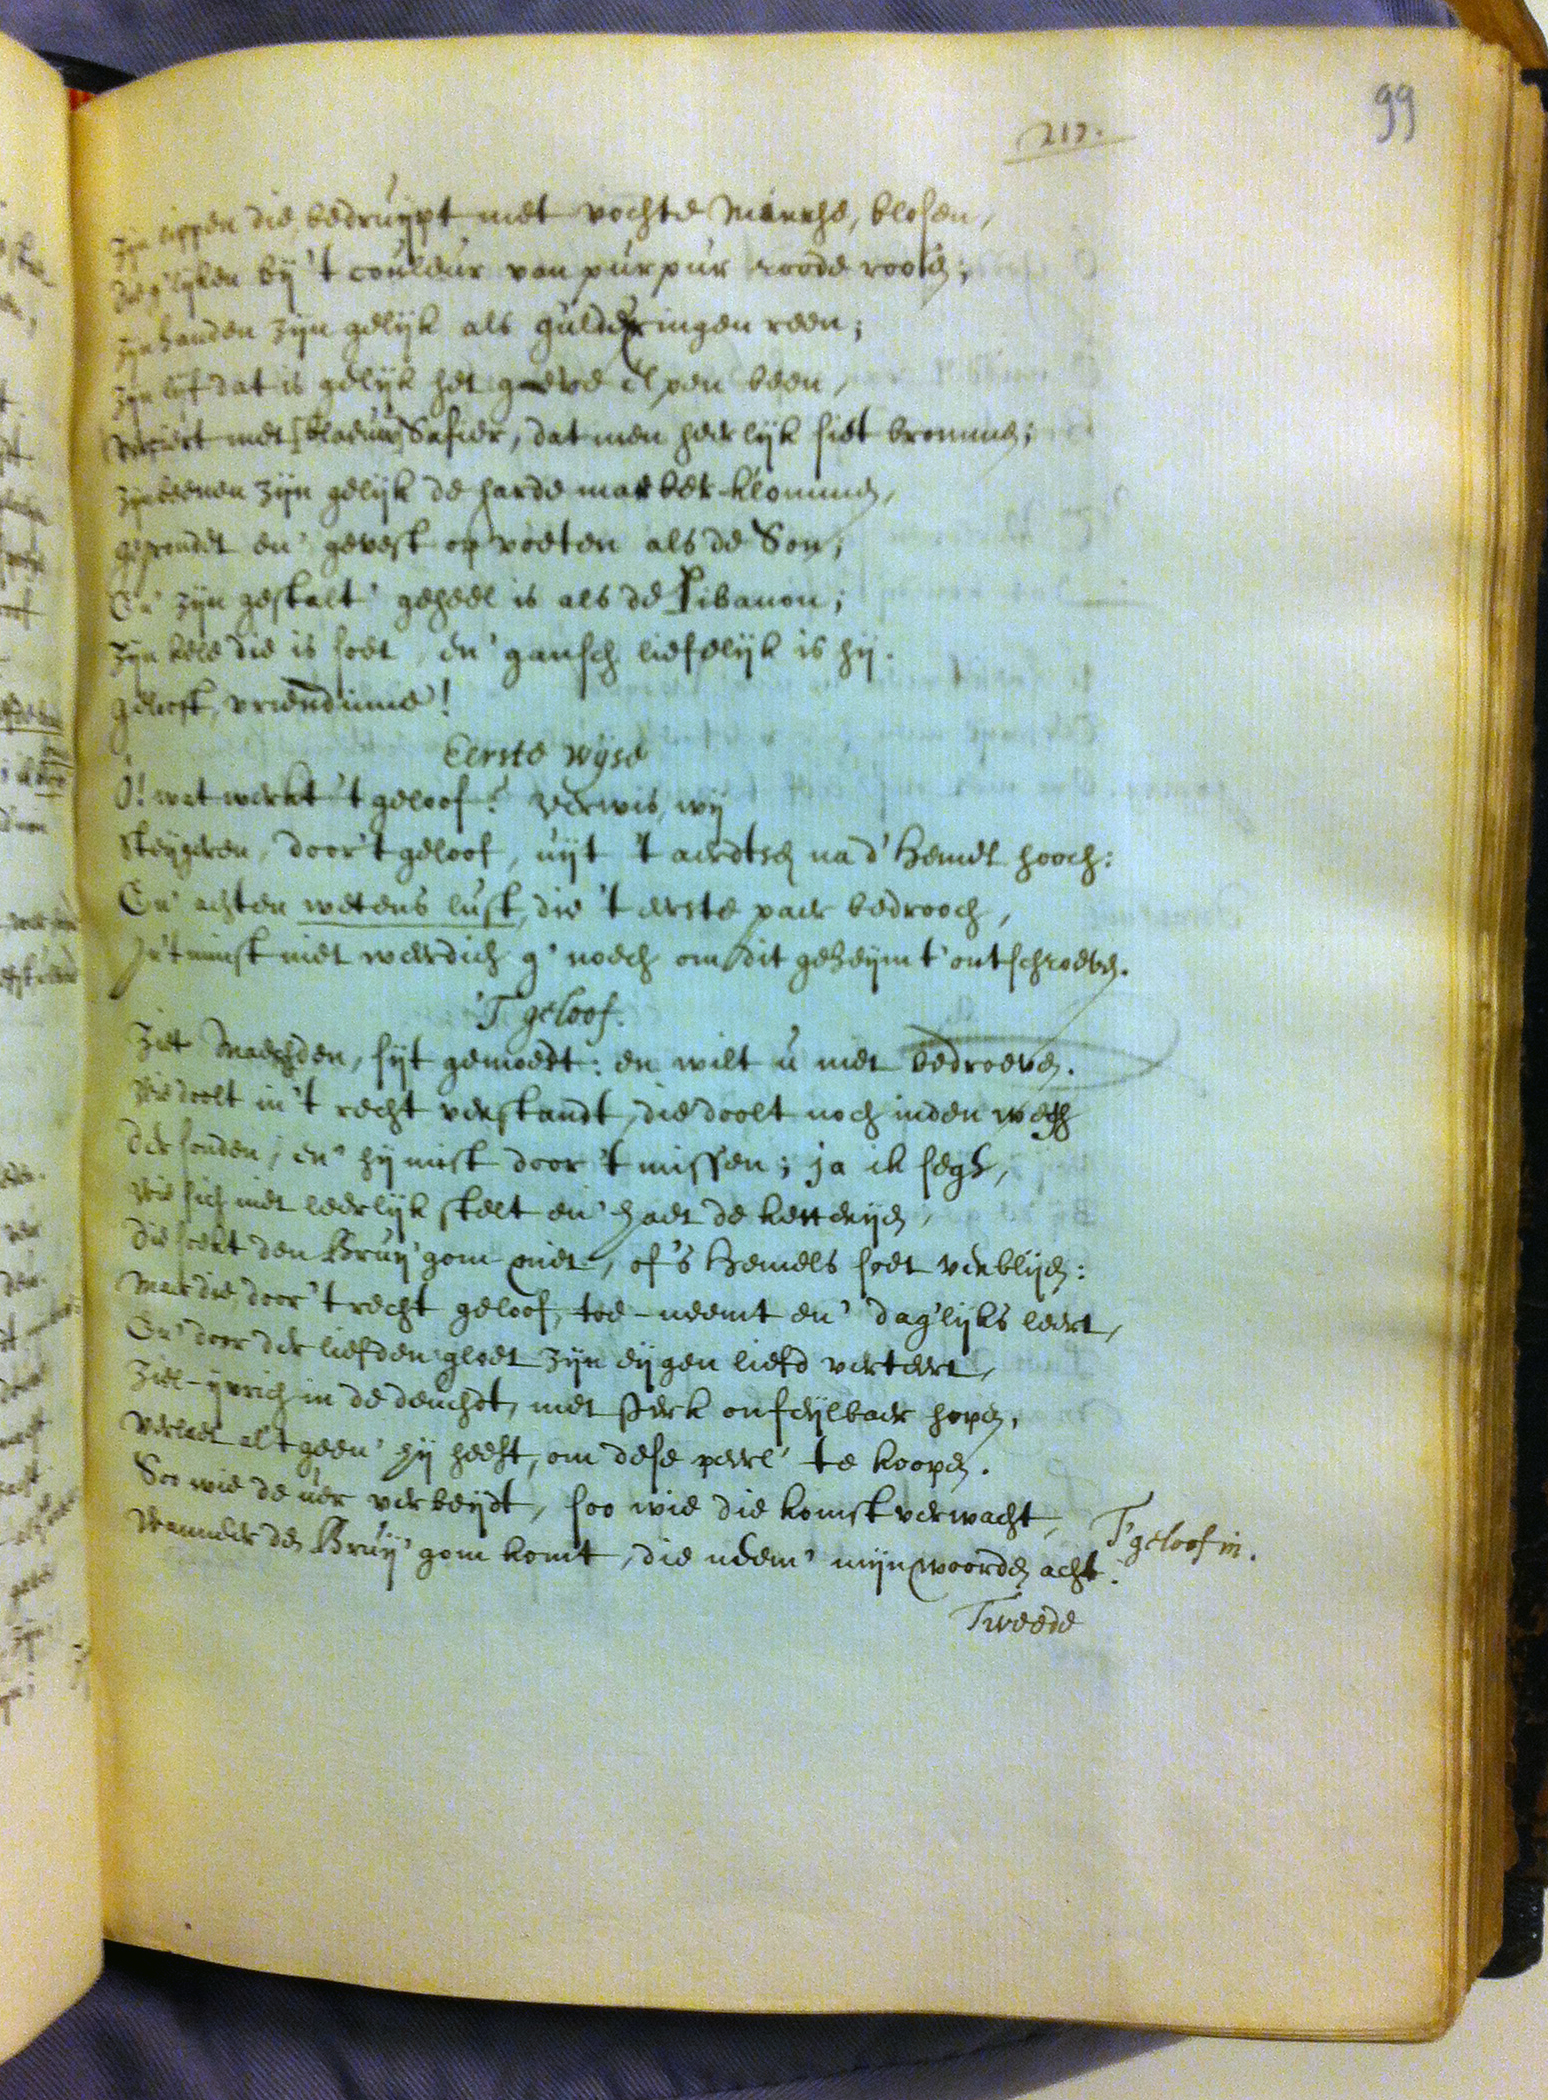 99
217.
Zijn lippen die, bedruÿpt met vochte Mirrhe, blosen,
die g'lijken bÿ 't couleur van purpur roode roosen;
Zijn handen zijn gelijk als gulde ringen reen;
Zijn lijf dat is gelijk het gaeve elpen been,
Verçiert met [blaeuw] Safier, dat men heerlijk siet bromme͂;
Zijn beenen zijn gelijk de harde marber-klomme͂,
gegrondet en' gevest op voeten als de Son;
En' zijn gestalt' geheel is als de Libanon;
Zijn kele die is soet, en' gansch lieflijk is hij.
geloest, vriendinne!
Eerste wijse
O! wat werkt 't geloof? Verwis, wij
steÿgeren, door 't geloof, uÿt 't aerdtsch na d'Hemel hooch:
En' achten wetens lust, die 't eerste paer bedrooch,
In't minst niet weerdich g'noech om dit geheÿm t'ontschroeve͂.
'T geloof.
Ziet Maechden, sijt gemoedt: en wilt u niet bedroeve͂.
Wie doolt in 't recht verstandt, die doolt noch inden wegh
der sonden; en' hij mist door 't missen; ja ik segh,
Wie sich niet leerlijk stelt en' haet de ketterije͂,
die soekt den Bruÿ'gom niet, of 's Hemels soet verblije͂:
Maer die, door 't recht geloof, toe-neemt en' dag'lijks leert,
En' door der liefden gloet zijn eijgen liefd verteert,
Ziel-ijvrich in de deuchdt, met sterk onfeijlbaer hope͂,
Verlaet al 't geen' hij heeft, om dese perel' te koope͂.
Soo wie de uer verbeijdt, soo wie die komst verwacht,
Wanneer de͂ Bruÿ'gom komt, die neem' mijn woorde͂ acht.
T'geloof in.
Tweede